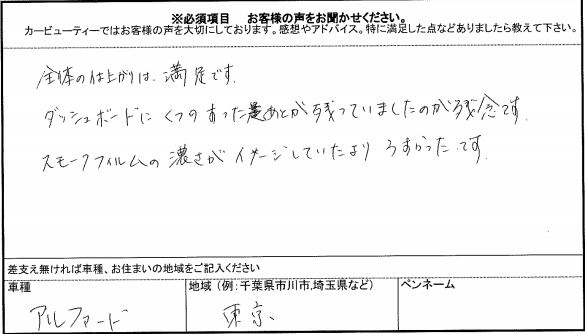 ※必須項目　お客様の声をお聞かせください。
カービューティーではお客様の声を大切にしております。感想やアドバイス。特に満足した点などありましたら教えて下さい。
全体の仕上がりは、満足です。
ダッシュボードにくつのすったあとが残っていましたのが残念です。
スモークフィルムの濃さがイメージしていたよりうすかったです。
差支え無ければ車種、お住まいの地域をご記入ください
車種　地域（例：千葉県市川市,埼玉県など）　ペンネーム
アルファード　東京、